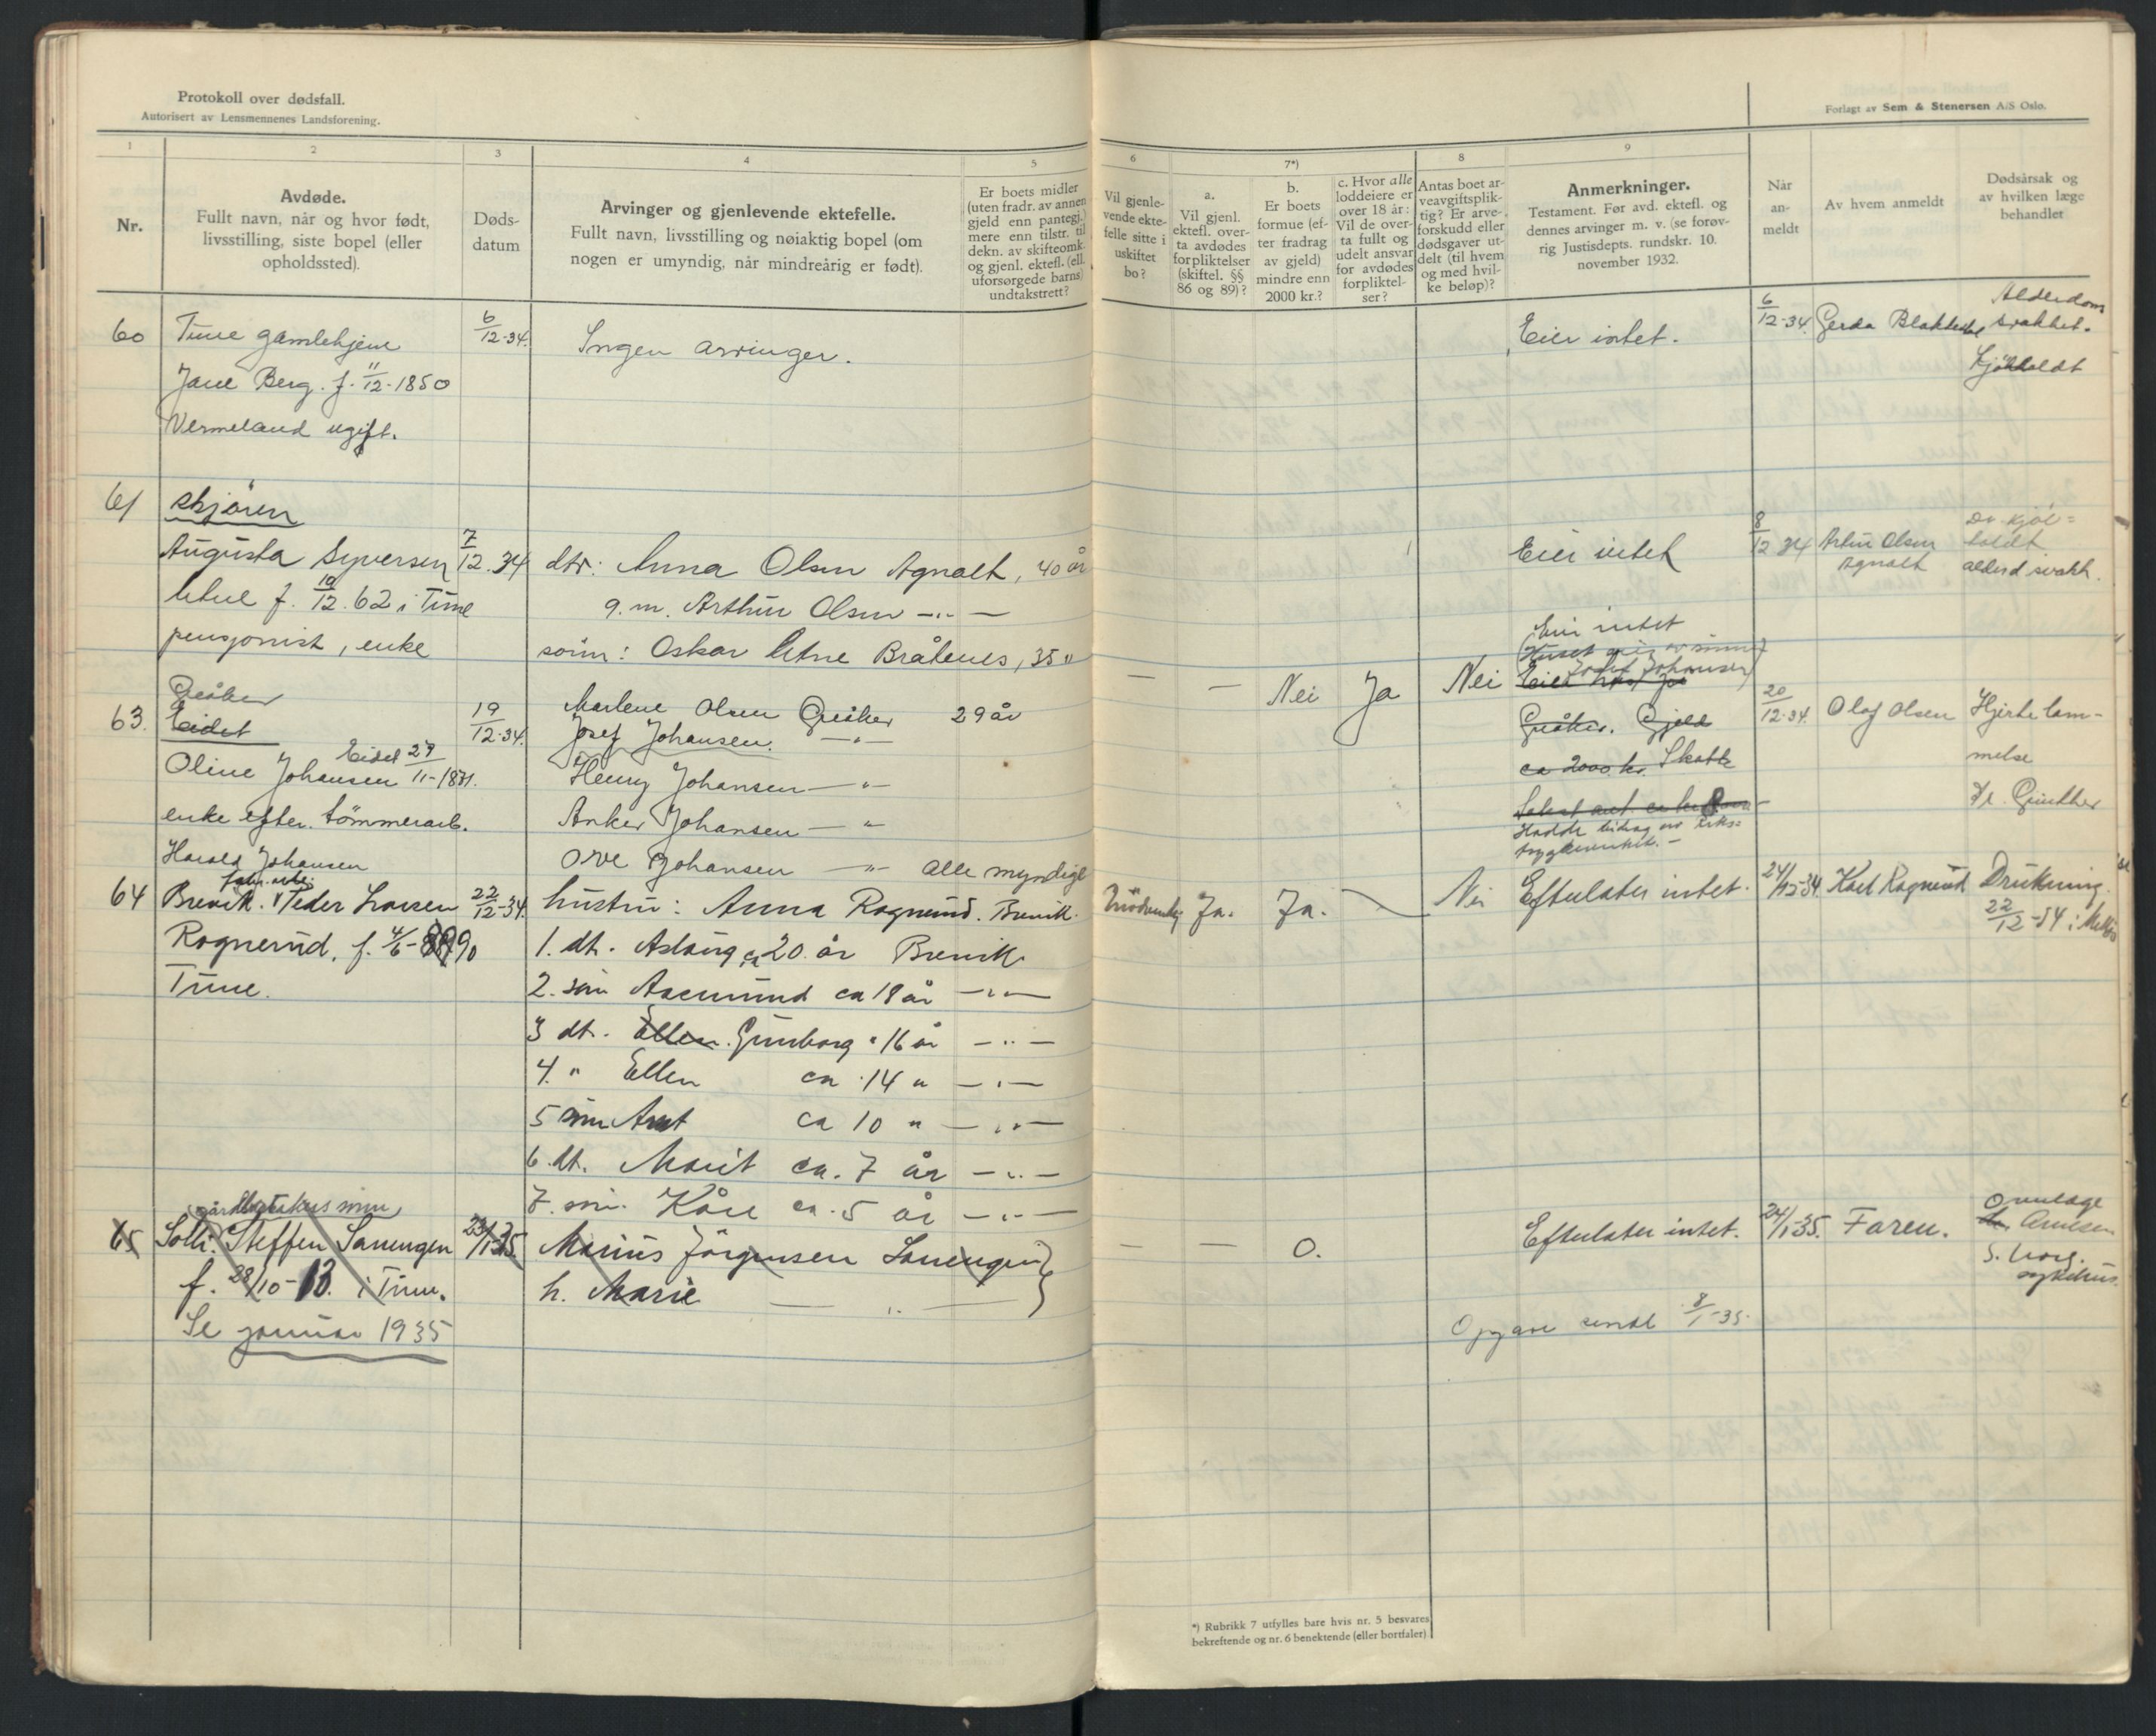 Protokoll over dødsfall.
Autorisert av Lensmennenes Landsforening.
Forlagt av Sem & Stenersen A/S Oslo.
1
2
3
4
5
6
7*)
8
9
Nr.
Avdøde.
Fullt navn, når og hvor født,
livsstilling, siste bopel (eller
opholdssted).
Døds-
datum
Arvinger og gjenlevende ektefelle.
Fullt navn, livsstilling og nøiaktig bopel (om
nogen er umyndig, når mindreårig er født).
Er boets midler
(uten fradr. av annen
gjeld enn pantegj.)
mere enn tilstr. til
dekn. av skifteomk.
og gjenl. ektefl. (ell.
uforsørgede barns)
undtakstrett?
Vil gjenle-
vende ekte-
felle sitte i
uskiftet
bo?
a.
Vil gjenl.
ektefl. over-
ta avdødes
forpliktelser
(skiftel. §§
86 og 89)?
b.
Er boets
formue (ef-
ter fradrag
av gjeld)
mindre enn
2000 kr.?
c. Hvor alle
loddeiere er
over 18 år:
Vil de over-
ta fullt og
udelt ansvar
for avdødes
forpliktel-
ser?
Antas boet ar-
veavgiftsplik-
tig? Er arve-
forskudd eller
dødsgaver ut-
delt (til hvem
og med hvil-
ke beløp)?
Anmerkninger.
Testament. Før avd. ektefl. og
dennes arvinger m. v. (se forøv-
rig Justisdepts. rundskr. 10.
november 1932.
Når
an-
meldt
Av hvem anmeldt
Dødsårsak og
av hvilken læge
behandlet
60
Tune gamlehjem
Jane Berg. f. 11/12-1850
Vermeland ugift.
6/12-34.
Ingen arvinger.
Eier intet.
6/12-34.
Gerda
Alderdom
svakhet.
61
Skjören
Augusta Syversen
Utne f. 10/12.62 i Tune
pensjonist, enke
7/12.34
dtr: Anna Olsen Agnalt, 40 år
g.m. Arthur Olsen -"-
sönn: Oskar Utne Bråtenes, 35 "
Eier intet
8/12 34
Artur Olsen
Agnalt
Dr. Kjöl=
boldt
alderd svakh.
63.
Greåker
Eidet
Oline Johansen Eidet 27/11-1871.
enke efter. tömmerarb.
Harald Johansen
19/12-34.
Marlene Olsen Greåker 29 år
Josef Johansen. -"-
Henry Johansen -"-
Anker Johansen -"-
Ove Johansen -"- alle myndige
— — Nei Ja Nei
Eier intet
(Huset eies av sønn
Josef Johansen)
Greåker. Gjeld
ca 2000 kr. Skatte
Hadde bidrag av Riks=
trygdeverket. -
20/12-34.
Olaf Olsen
Hjertelam-
melse
Dr. Günther
64
Brevik. Peder Larsen
Rognerud, f. 4/6-90
Tune.
22/12-34.
hustru: Anna Rognerud. Brevik.
1. dt. Aslaug ca 20 år Brevik
2. sön Asemund ca 18 år -"-
3 dt. Ellen. Gunborg " 16 år -"-
4. " Ellen ca 14 " -"-
5 sön Arnt ca 10 " -"-
6. dt. Marit ca. 7 år -"-
7. sön. Kåre ca. 5 år -"-
Unödvendig Ja. Ja. Nei
Efterlater intet.
24/12-34
Karl Rognerud
Drukning.
22/12-34 i
65
gårdbrukers sönn
Solli. Steffen Sanengen
f. 28/10-13. i Tune.
Se januar 1935
23/1-35.
Marius Jörgensen Sanengen
h. Marie -"-
— — 0.
Efterlater intet.
24/1-35.
Faren.
Overlæge
Arnesen
S. borg.
sykehus.
Opgave sendt 8/1-35.
*) Rubrikk 7 utfylles bare hvis nr. 5 besvares
bekreftende og nr. 6 benektende (eller bortfaler)